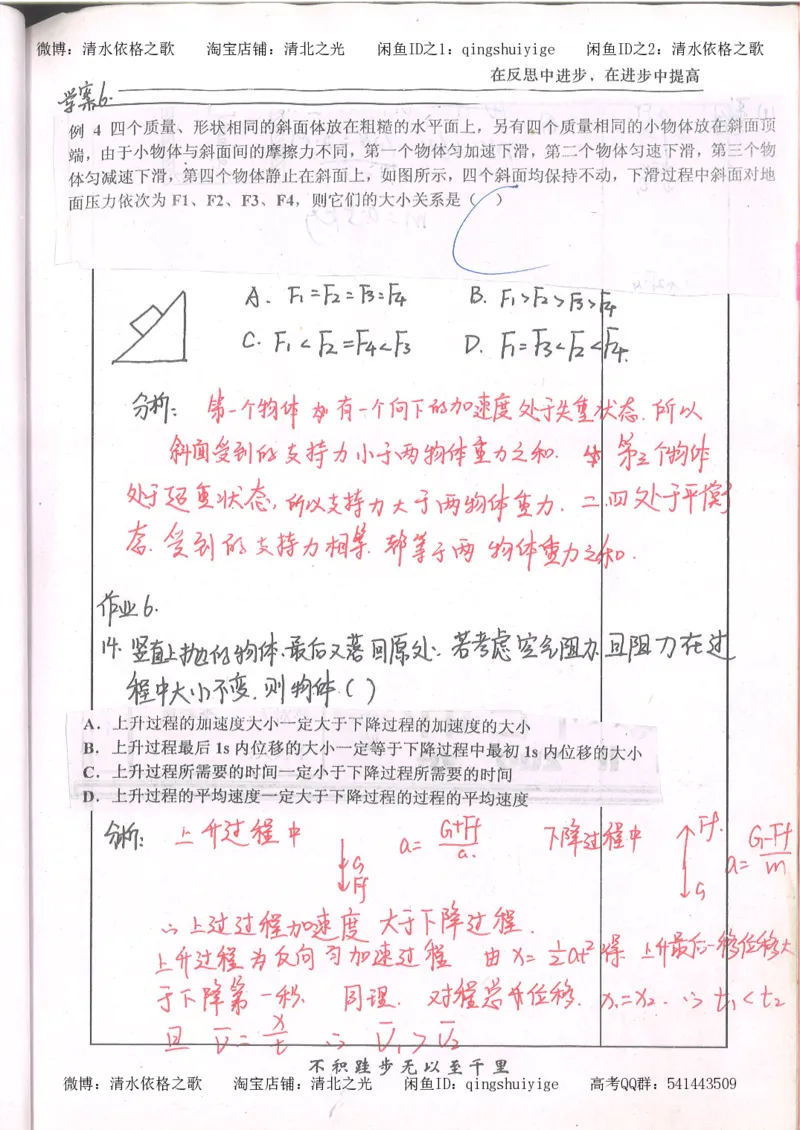 微博：清水依格之歌 淘宝店铺：清北之光 闲鱼ID之1：qingshuiyige 闲鱼ID之2：清水依格之歌
在反思中进步，在进步中提高
学案6.
例 4 四个质量、形状相同的斜面体放在粗糙的水平面上，另有四个质量相同的小物体放在斜面顶
端，由于小物体与斜面间的摩擦力不同，第一个物体匀加速下滑，第二个物体匀速下滑，第三个物
体匀减速下滑，第四个物体静止在斜面上，如图所示，四个斜面均保持不动，下滑过程中斜面对地
面压力依次为 F1、F2、F3、F4，则它们的大小关系是（C）
A. F1=F2=F3=F4 B. F1>F2>F3>F4
C. F1<F2=F4<F3 D. F1=F3<F2<F4.
分析：第一个物体有一个向下的加速度处于失重状态.所以
斜面受到的支持力小于两物体重力之和. 第三个物体
处于超重状态,所以支持力大于两物体重力. 二.四处于平衡
态.受到的支持力相等.都等于两物体重力之和.
作业6.
14.竖直上抛的物体,最后又落回原处:若考虑空气阻力.且阻力在过
程中大小不变.则物体( )
A．上升过程的加速度大小一定大于下降过程的加速度的大小
B．上升过程最后 1s 内位移的大小一定等于下降过程中最初 1s 内位移的大小
C．上升过程所需要的时间一定小于下降过程所需要的时间
D．上升过程的平均速度一定大于下降过程的过程的平均速度
分析: 上升过程中 G Ff a=G+Ff/a. 下降过程中 Ff. G a=G-Ff/m
∴上过过程加速度 大于下降过程.
上升过程为反向匀加速过程 由 x=1/2at² 得 上升最后一秒位移大
于下降第一秒. 同理. 对程总位移. x1=x2. ∴ t1<t2
且 v̄=x/t ∴ v̄1>v̄2
不积跬步无以至千里
微博：清水依格之歌 淘宝店铺：清北之光 闲鱼ID：qingshuiyige 高考QQ群：541443509